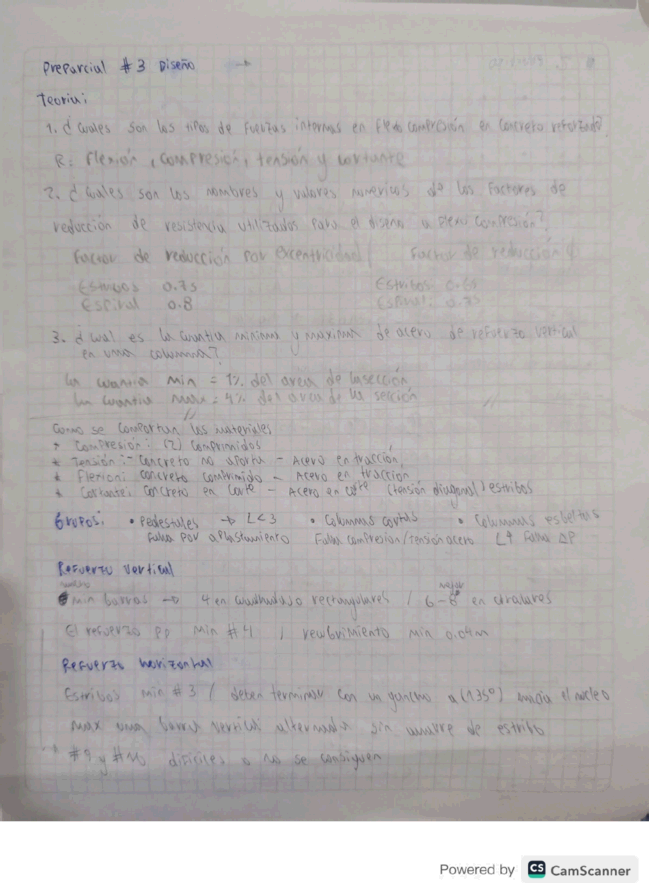 Preparcial #3 Diseño →
Teoria:
1. ¿Cuales son los tipos de fuerzas internas en flexo compresión en concreto reforzado?
R: Flexión, compresión, tensión y cortante
2. ¿Cuales son los nombres y valores numericos de los factores de
reducción de resistencia utilizados para el diseño a flexo compresión?
Factor de reducción por excentricidad / Factor de reducción ϕ
Estribos 0.75 Estribos 0.65
Espiral 0.8 Espiral: 0.75
3. ¿Cual es la cuantia minima y maxima de acero de refuerzo vertical
en una columna?
La cuantia min = 1% del area de la sección
La cuantia max = 4% del area de la sección
Como se comportan los materiales
* Compresión: (2) comprimidos
* Tensión: - Concreto no aporta - Acero en tracción
* Flexion: concreto comprimido - Acero en traccion
* Cortante: Concreto en corte - Acero en corte (tensión diagonal) estribos
Grupos: • Pedestales → L<3 • Columnas cortas • Columnas esbeltas
Falla por aplastamiento Falla compresión/tensión acero L↑ Falla ΔP
Refuerzo vertical
mejor
min barras → 4 en rectangulares / 6-8 en circulares
El refuerzo pp min #4 / recubrimiento min 0.04m
Refuerzo horizontal
Estribos min #3 / deben terminar con un gancho a (135°) hacia el nucleo
max una barra vertical alternada sin amarre de estribo
#9 y #10 dificiles o no se consiguen
Powered by CS CamScanner